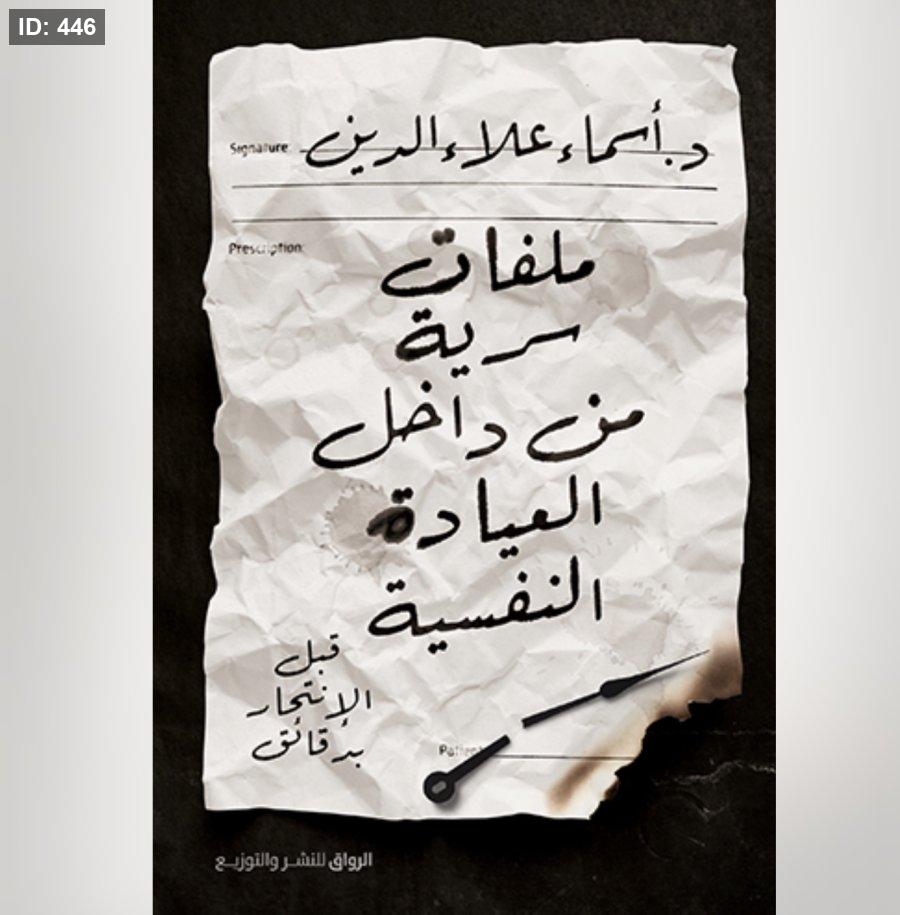 ID: 446
Signature: د. أسماء علاء الدين
Prescription:
ملفات
سرية
من داخل
العيادة
النفسية
قبل
الإنتحار
بدقائق
Patient
الرواق للنشر والتوزيع